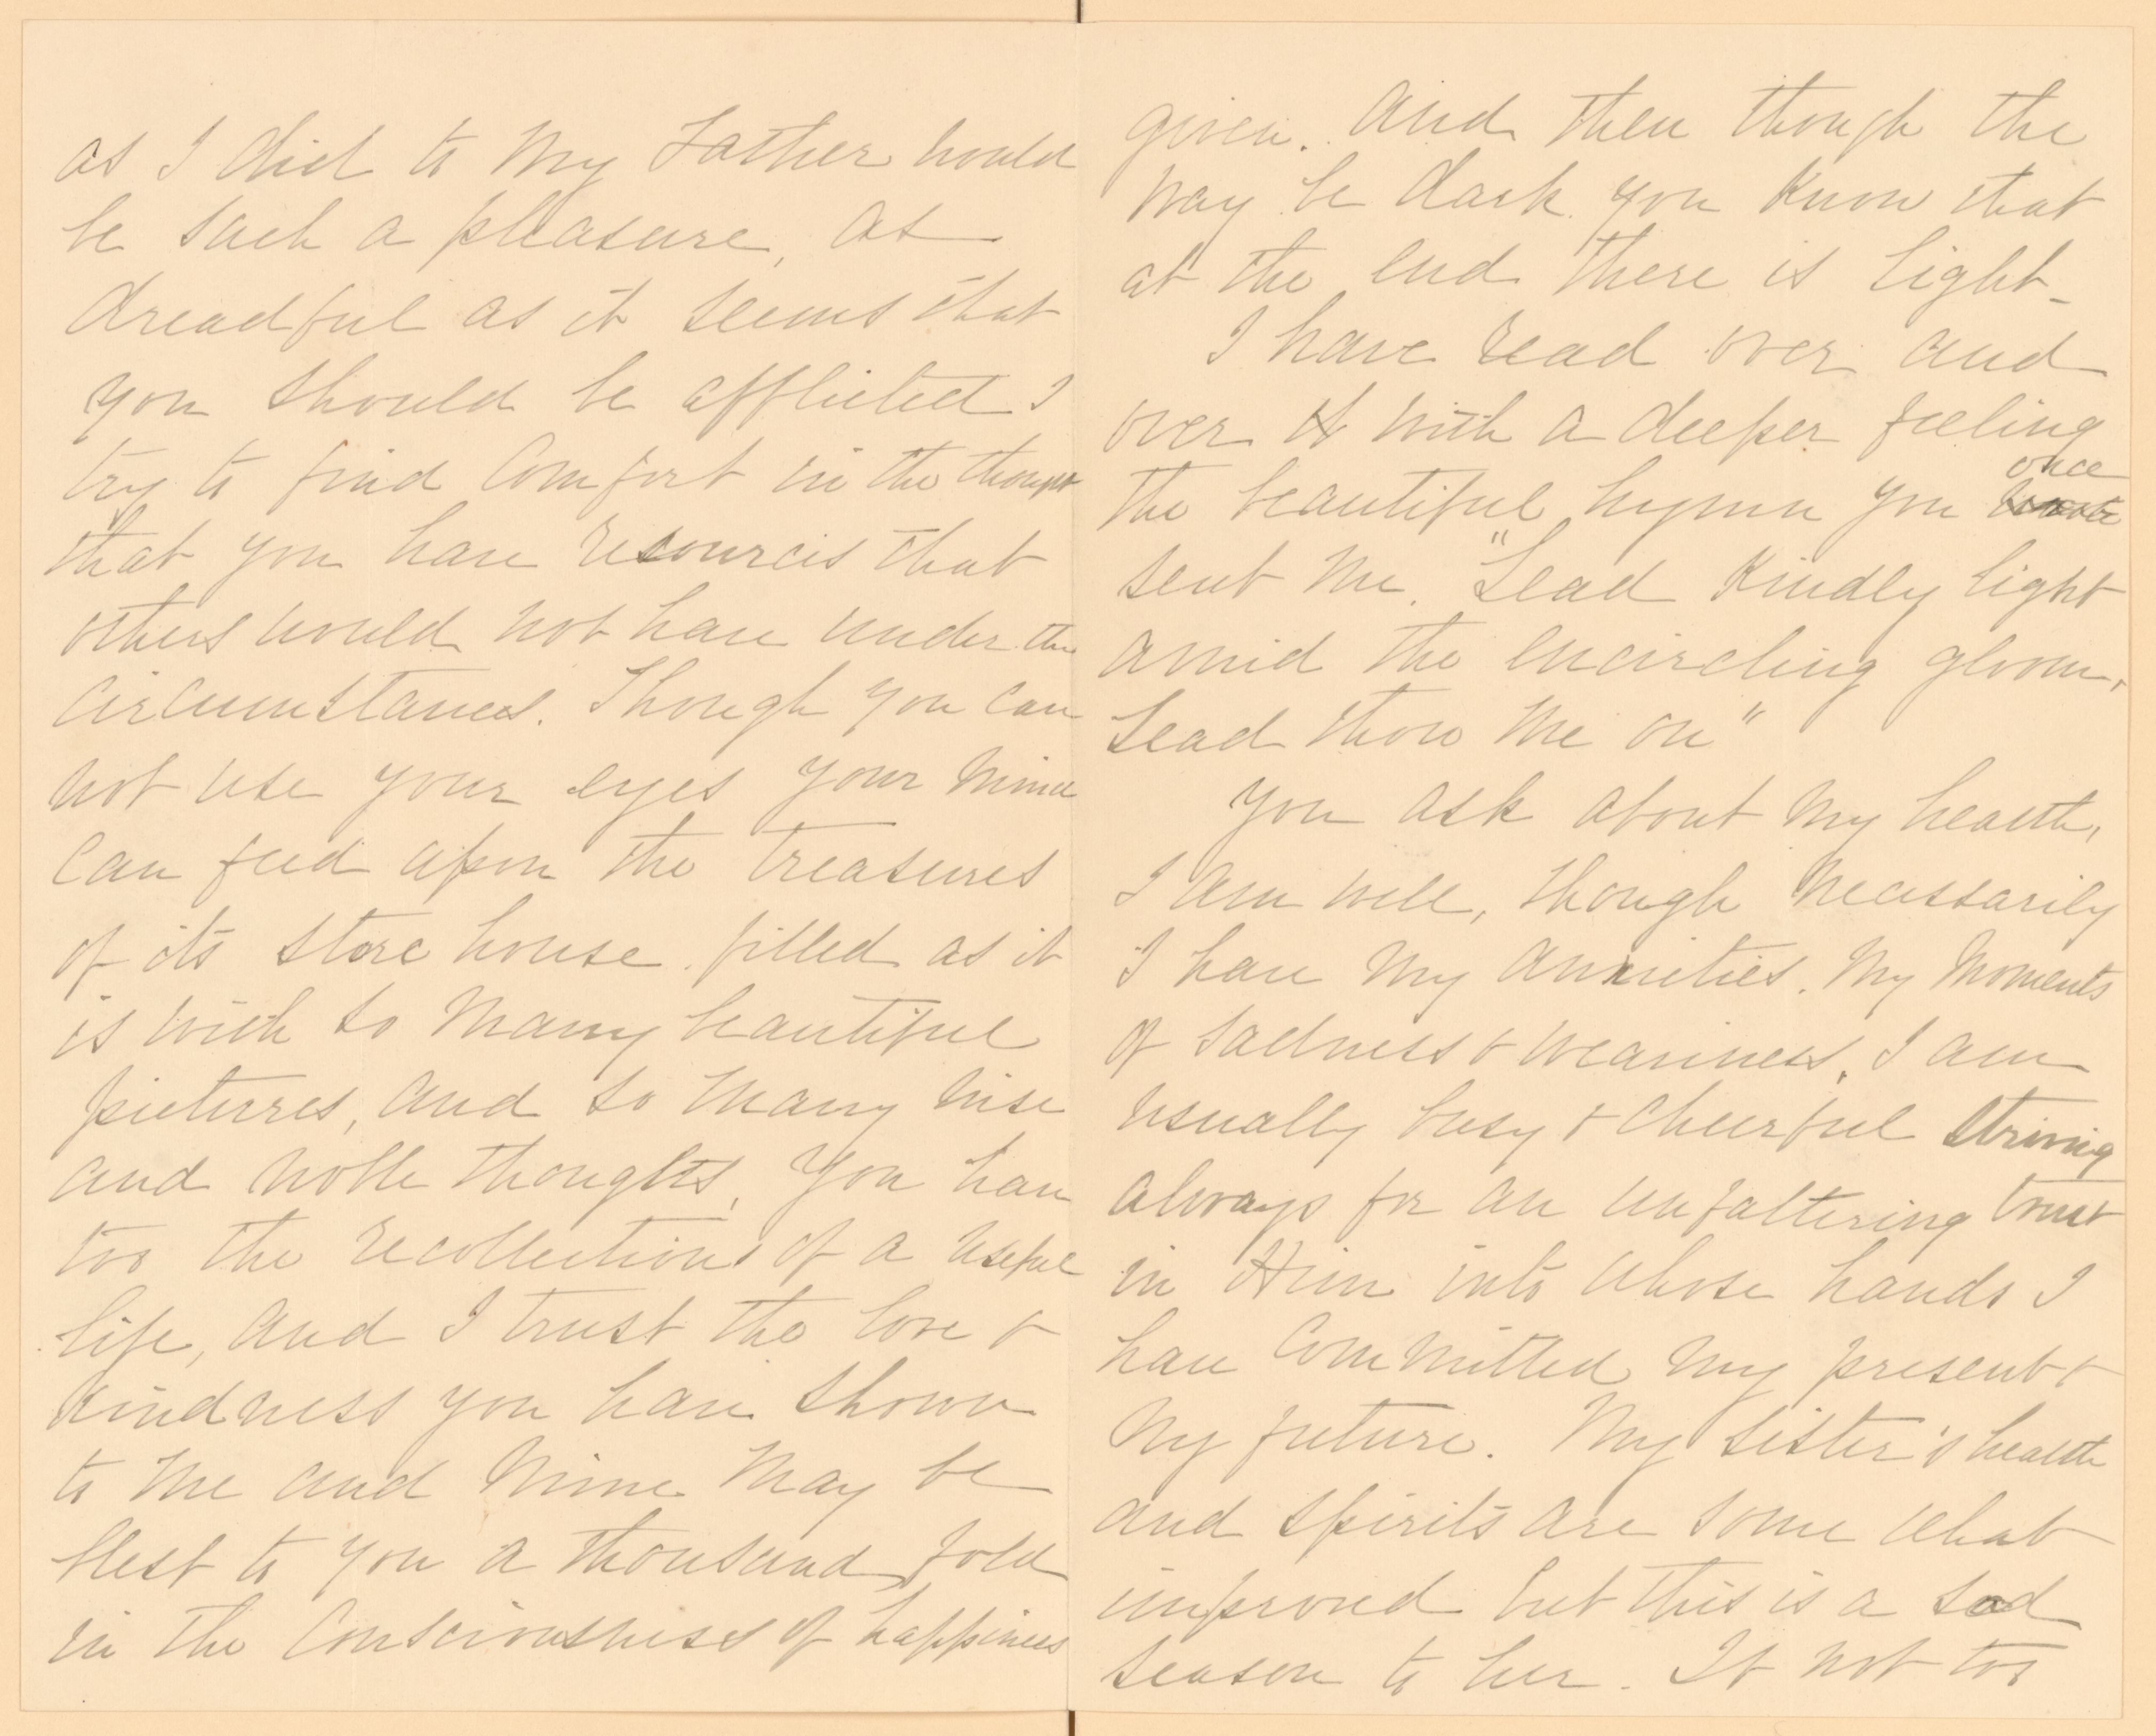 as I did to my Father would
be such a pleasure, as
dreadful as it seems that
you should be afflicted I
try to find comfort in the thought
that you have resources that
others would not have under the
circumstances. Though you can
not use your eyes your mind
can feed upon the treasures
of its store house. filled as it
is with so many beautiful
pictures, and so many wise
and noble thoughts, You have
too the recollections of a useful
life, and I trust the love &
kindness you have shown
to me and mine may be
blest to you a thousand fold
in the consciousness of happiness
given. And then though the
way be dark you know that
at the end there is light_
I have read over and
over with a deeper feeling
once
the beautiful hymn you
sent me. "Lead Kindly light
amid the encircling gloom,
Lead thou me on"
You ask about my health,
I am well, though necessarily
I have my anxieties. My moments
of sadness & weariness. I am
usually busy & cheerful striving
always for an unfaltering trust
in Him into whose hands I
have committed my present &
my future. My sister's health
and spirits are some what
improved but this is a sad
season to her. It not too